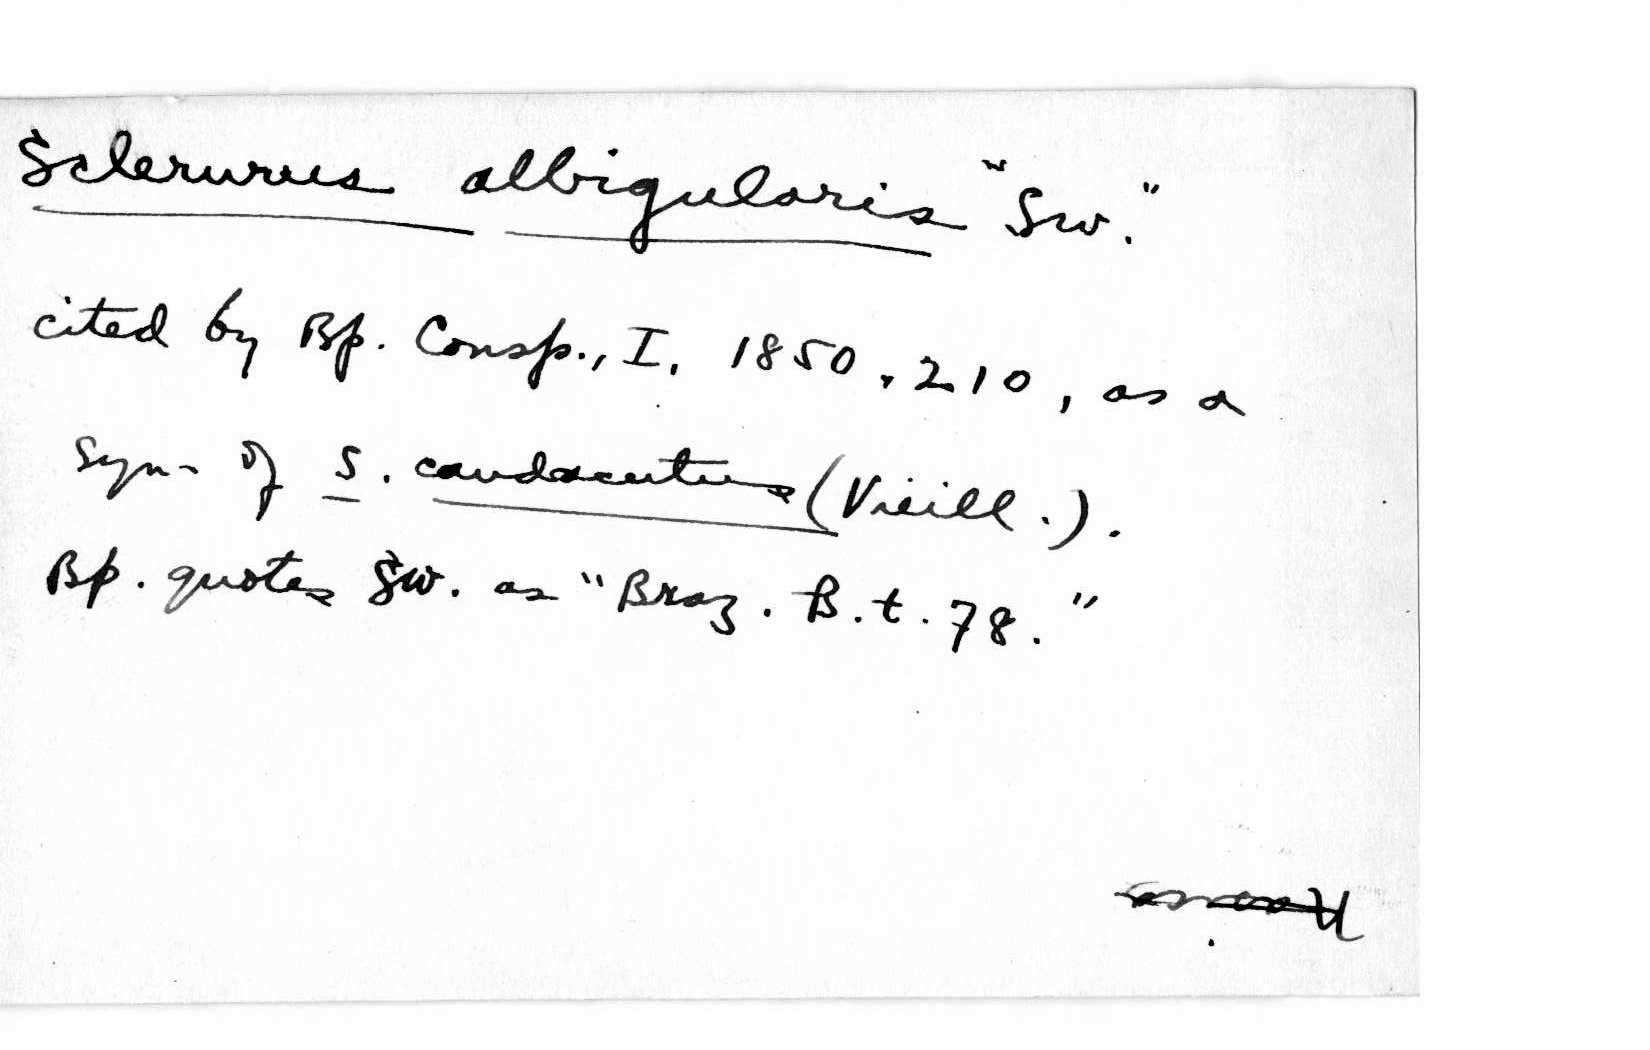 Sclerurus albigularis "Sw."
cited by Bp. Consp., I, 1850, 210, as a
syn. of S. caudacutus (Vieill.).
Bp. quotes Sw. as "Braz. B. t. 78."